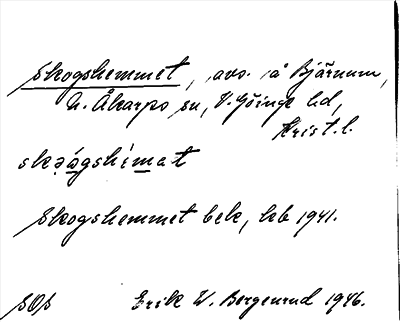 Skogshemmet, avs. å Bjärnum,
N. Åkarps sn, V. Göinge hd,
Krist. l.
skǝågshímat
Skogshemmet bek, hb 1941.
SOS Erik W. Bergenrud 1946.